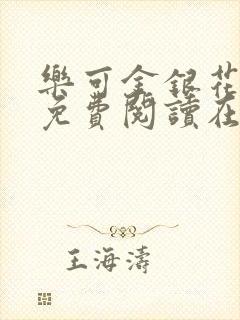 樂可金銀花
免費閱讀在
王海濤